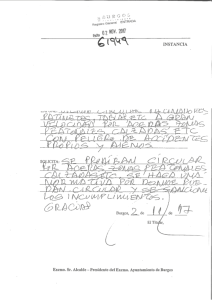 BURGOS
Registro General
Entrada
Fecha 02 NOV. 2017
61949
INSTANCIA
CIRCULAR
PATINETES, ETC A GRAN
VELOCIDAD POR ACERAS ZONAS
PEATONALES, CALZADAS ETC
CON PELIGRO DE ACCIDENTES
PROPIOS Y AJENOS
SOLICITA: SE PROHIBAN CIRCULAR
POR ACERAS ZONAS PEATONALES
CALZADAS ETC. SE HAGA UNA
NORMATIVA POR DONDE PUE-
DAN CIRCULAR Y SE SANCIONE
LOS INCUMPLIMIENTOS.
GRACIAS
Burgos, 2 de 11 de 17
El Titular,
Excmo. Sr. Alcalde - Presidente del Excmo. Ayuntamiento de Burgos